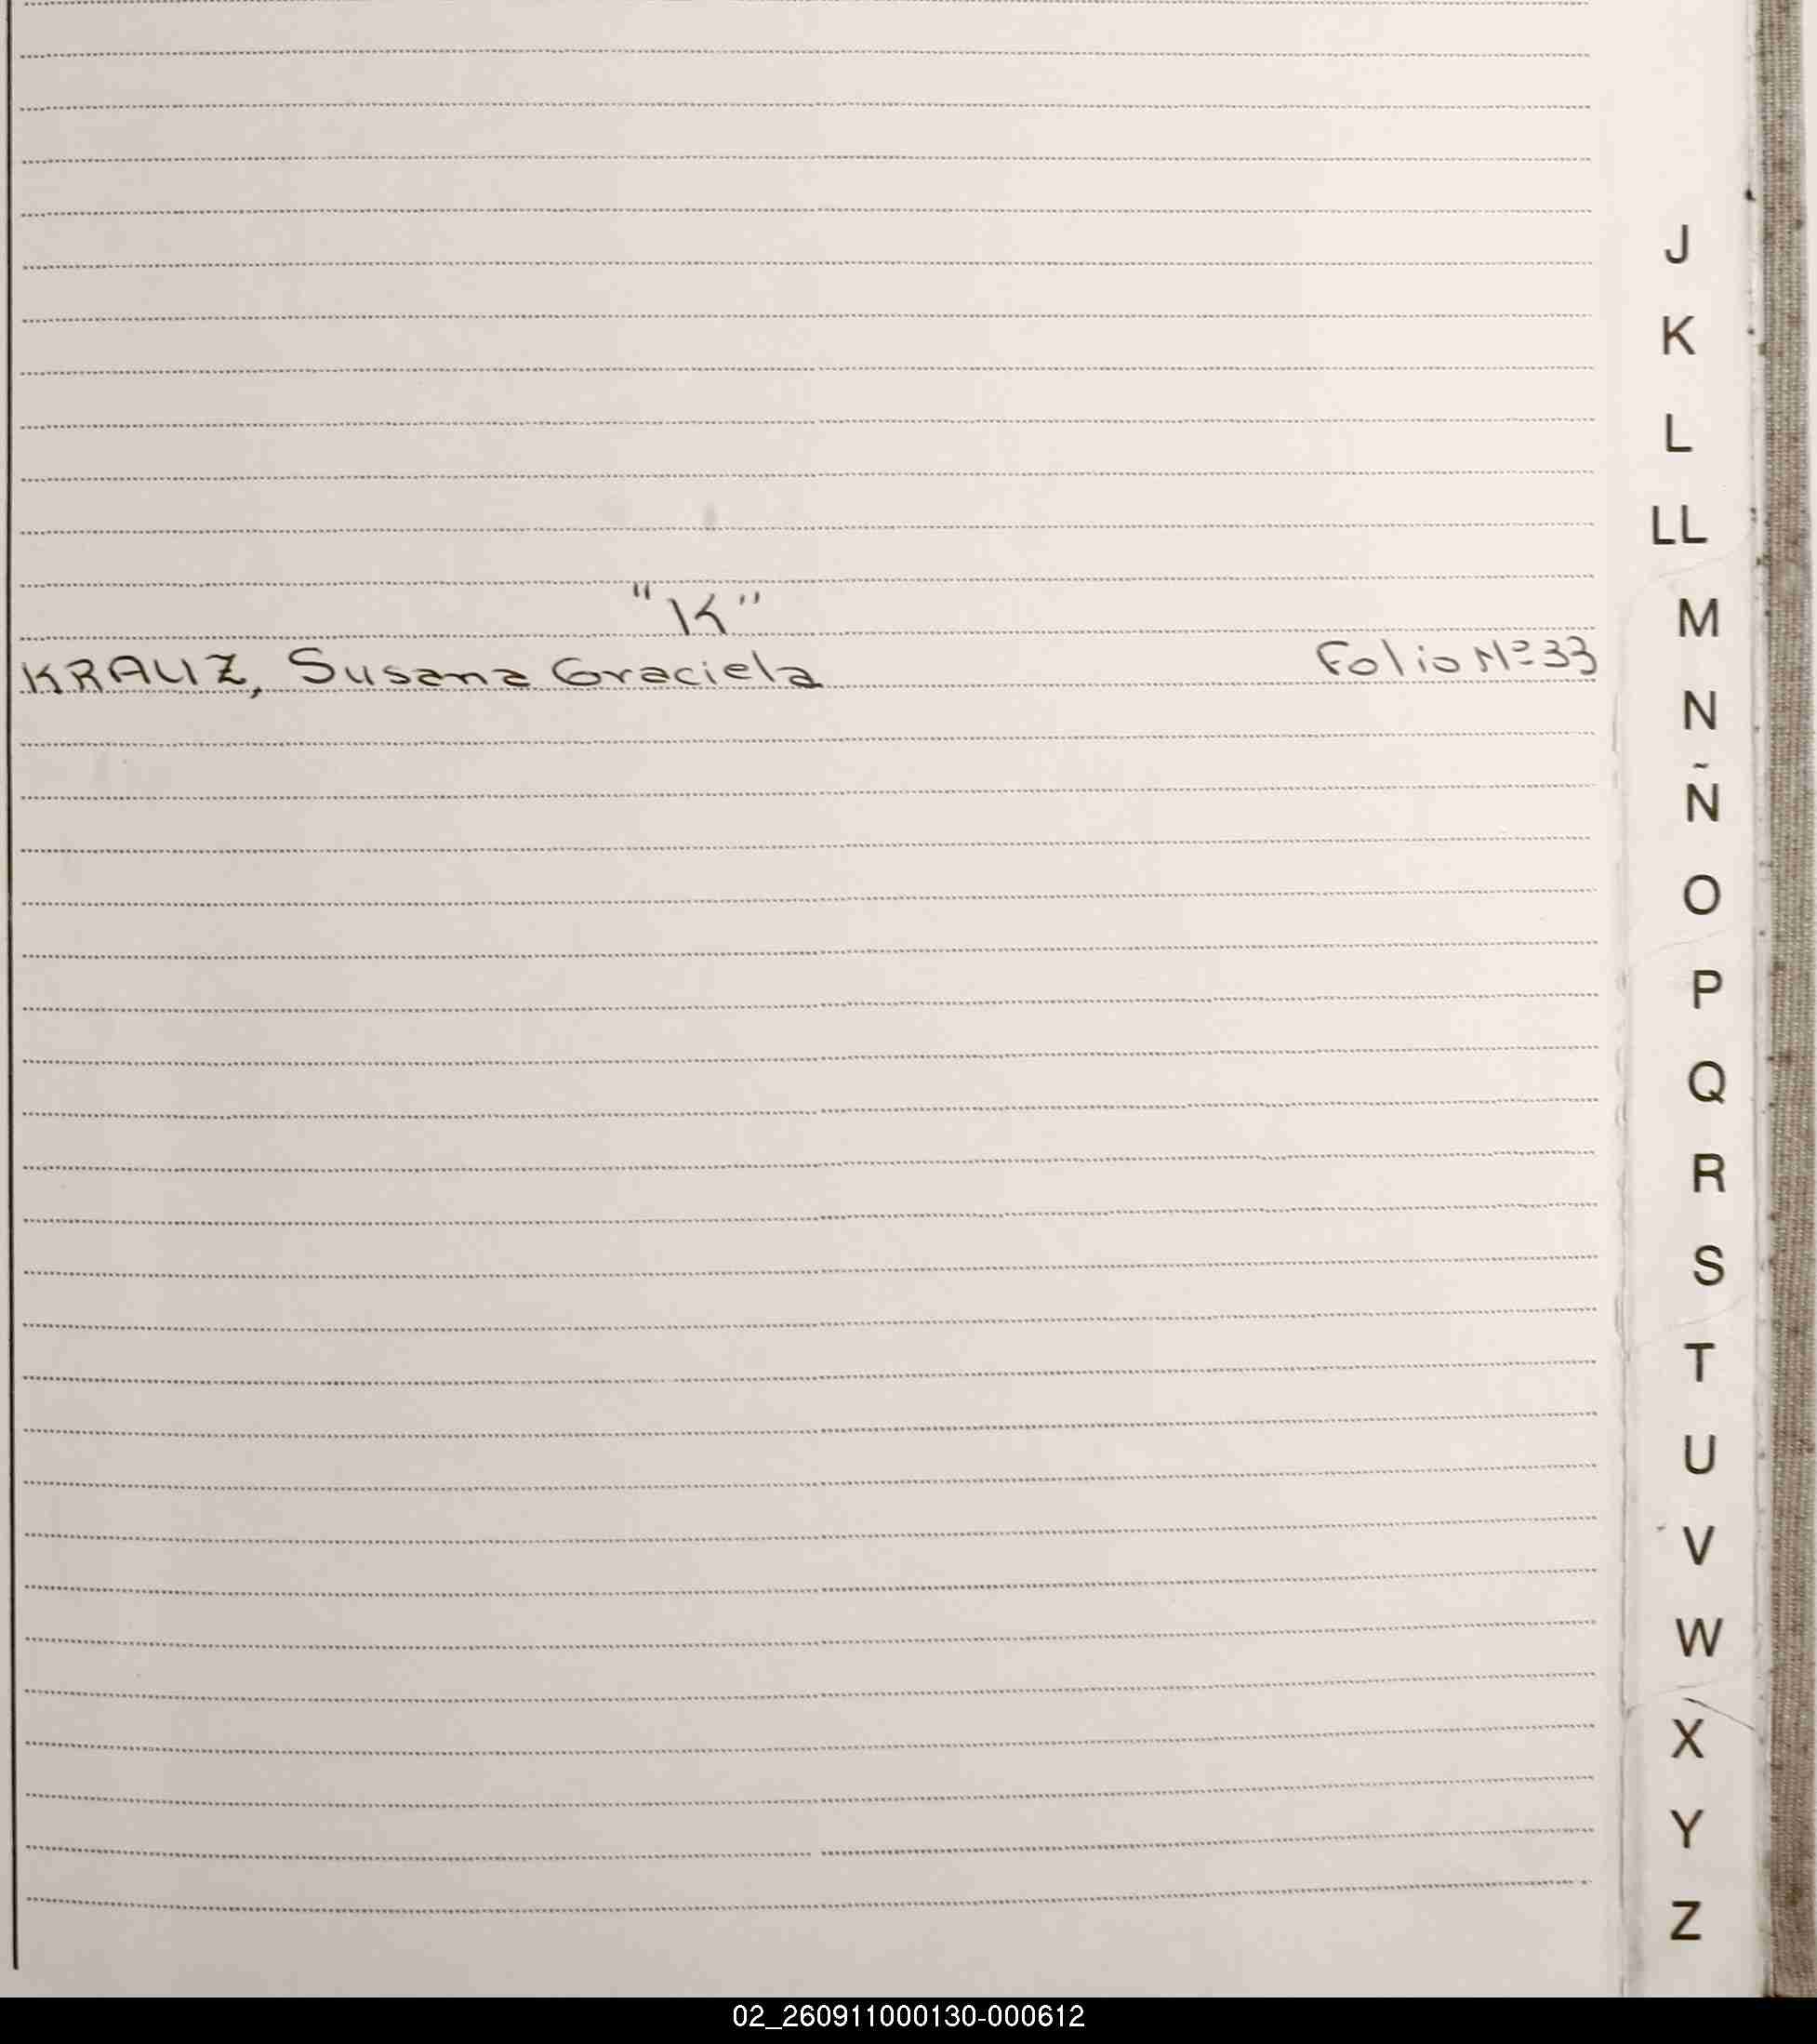 "K"
KRAUZ, Susana Graciela Folio Nº 33
J
K
L
LL
M
N
Ñ
O
P
Q
R
S
T
U
V
W
X
Y
Z
02_260911000130-000612